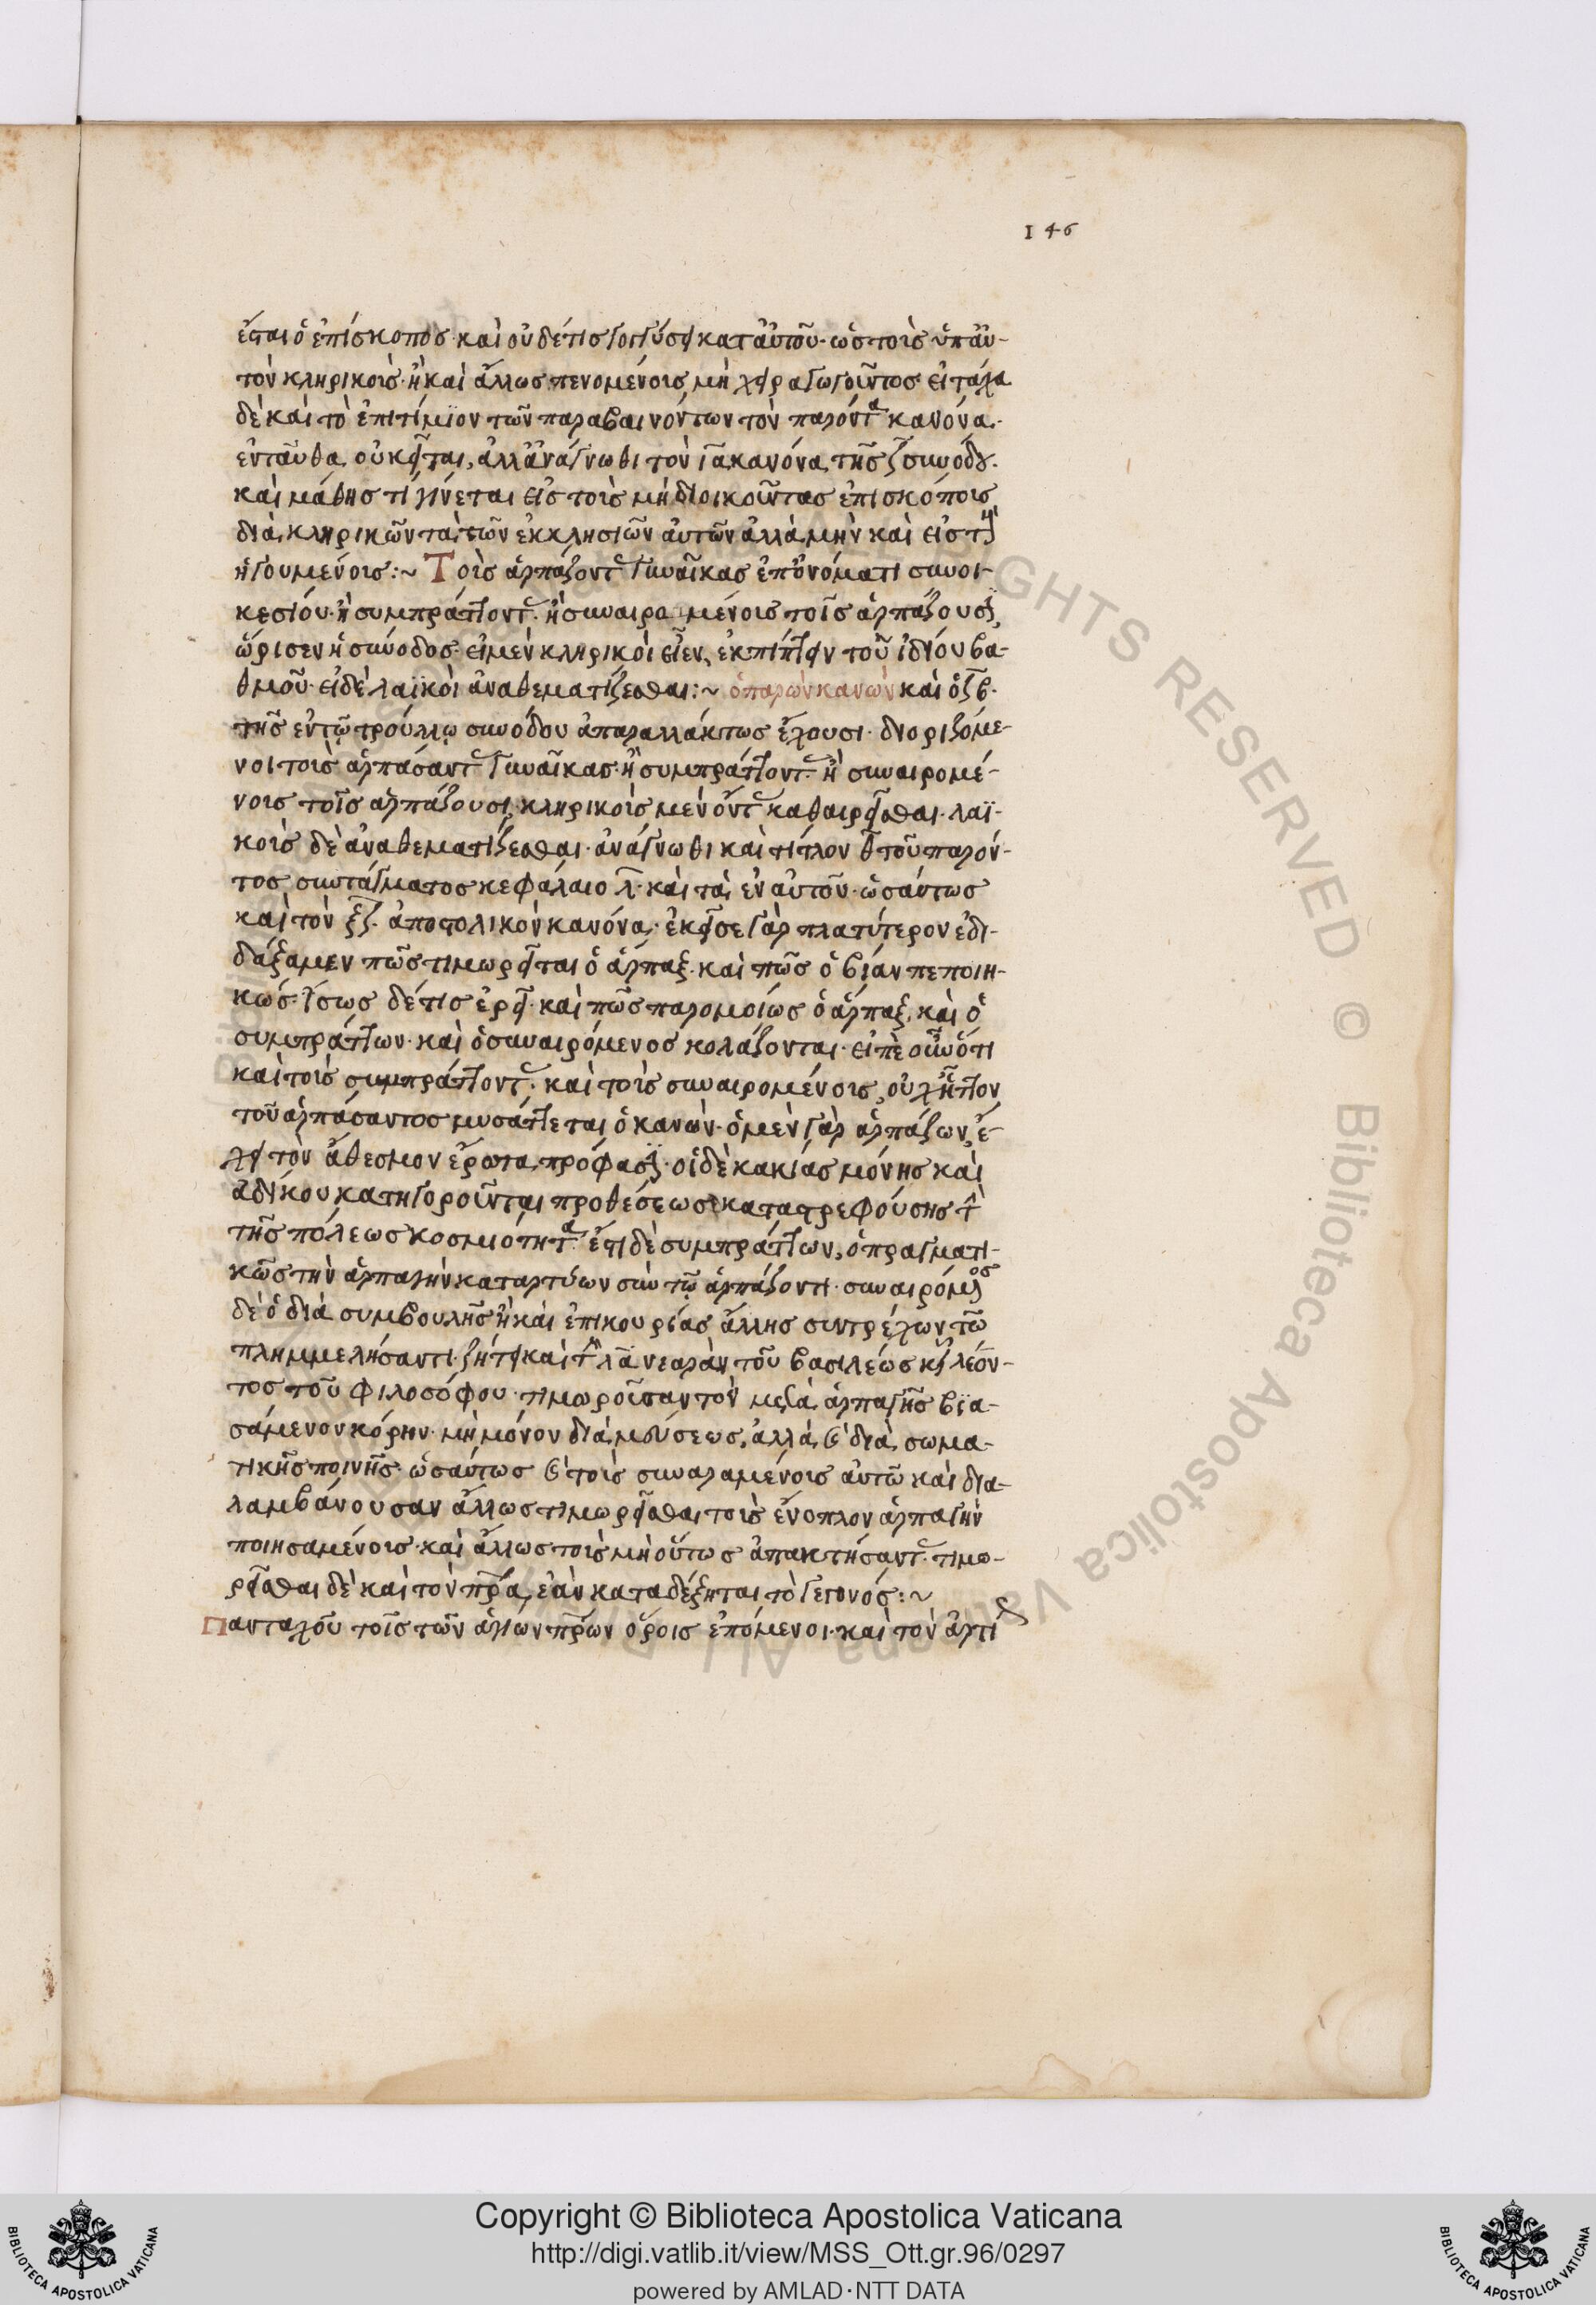 146
ἔσται ὁ ἐπίσκοπος· καὶ οὐδέ τις γογγύσει κατ' αὐτοῦ· ὡς τοὺς ὑπ' αὐ-
τὸν κληρικοὺς· ἢ καὶ ἄλλως πενομένους μὴ χειραγωγοῦντος· εἰ τάχα
δὲ καὶ τὸ ἐπιτίμιον τῶν παραβαινόντων τὸν παρόντα κανόνα·
ἐνταῦθα οὐ κεῖται, ἀλλ' ἀνάγνωθι τὸν ια κανόνα τῆς ζ συνόδου·
καὶ μάθης τί γίνεται εἰς τοὺς μὴ διοικοῦντας ἐπισκόπους
διὰ κληρικῶν τὰ τῶν ἐκκλησιῶν αὐτῶν ἀλλὰ μὴν καὶ εἰς τοὺς
ἡγουμένους :~ Τοὺς ἁρπάζοντας γυναῖκας ἐπ' ὀνόματι συνοι-
κεσίου· ἢ συμπράττοντας· ἢ συναιραμένους τοῖς ἁρπάζουσιν,
ὥρισεν ἡ σύνοδος· εἰ μὲν κληρικοὶ εἶεν, ἐκπίπτειν τοῦ ἰδίου βα-
θμοῦ· εἰ δὲ λαϊκοὶ ἀναθεματίζεσθαι :~ ὁ παρὼν κανὼν καὶ ὁ ϟβ·
τῆς ἐν τῷ τρούλλῳ συνόδου ἀπαραλλάκτως ἔχουσι· διοριζόμε-
νοι τοὺς ἁρπάσαντας γυναῖκας· ἢ συμπράττοντας· ἢ συναιρομέ-
νους τοῖς ἁρπάζουσι, κληρικοὺς μὲν ὄντας καθαιρεῖσθαι· λαϊ-
κοὺς δὲ ἀναθεματίζεσθαι· ἀνάγνωθι καὶ τίτλον θ τοῦ παρόν-
τος συντάγματος κεφάλαιο λ· καὶ τὰ ἐν αὐτοῦ· ὡσαύτως
καὶ τὸν ξζ· ἀποστολικὸν κανόνα· ἐκεῖσε γὰρ πλατύτερον ἐδι-
δάξαμεν πῶς τιμωρεῖται ὁ ἅρπαξ· καὶ πῶς ὁ βίαν πεποιη-
κώς· ἴσως δέ τις ἐρεῖ· καὶ πῶς παρομοίως ὁ ἅρπαξ, καὶ ὁ
συμπράττων· καὶ ὁ συναιρόμενος κολάζονται· εἰπὲ οὖν ὅτι
καὶ τοὺς συμπράττοντας· καὶ τοὺς συναιρομένους, οὐχ ἧττον
τοῦ ἁρπάσαντος μυσάττεται ὁ κανών· ὁ μὲν γὰρ ἁρπάζων, ἔ-
χει τὸν ἄθεσμον ἔρωτα πρόφασιν· οἱ δὲ κακίας μόνης καὶ
ἀδίκου κατηγοροῦνται προθέσεως καταστρεφούσης τὴν
τῆς πόλεως κοσμιότητα· ἔστι δὲ συμπράττων, ὁ πραγματι-
κῶς τὴν ἁρπαγὴν καταρτύων σὺν τῷ ἁρπάζοντι· συναιρόμενος
δὲ ὁ διὰ συμβουλῆς ἢ καὶ ἐπικουρίας ἄλλης συντρέχων τῶ
πλημμελήσαντι· ζήτει καὶ τὴν λα νεαρὰν τοῦ βασιλέως κυρ λέον-
τος τοῦ φιλοσόφου· τιμωροῦσαν τὸν μετὰ ἁρπαγῆς βια-
σάμενον κόρην· μὴ μόνον διὰ μδύσεως, ἀλλὰ καὶ διὰ σωμα-
τικῆς ποινῆς· ὡσαύτως καὶ τοὺς συναραμένους αὐτῶ καὶ δια-
λαμβάνουσαν ἄλλως τιμωρεῖσθαι τοὺς ἔνοπλον ἁρπαγὴν
ποιησαμένους· καὶ ἄλλως τοὺς μὴ οὕτως ἀπακτήσαντας· τιμω-
ρεῖσθαι δὲ καὶ τὸν πρα, ἐὰν καταδέξηται τὸ γεγονός :~
Πανταχοῦ τοῖς τῶν ἁγίων πρων ὅροις ἑπόμενοι· καὶ τὸν ἀρτί